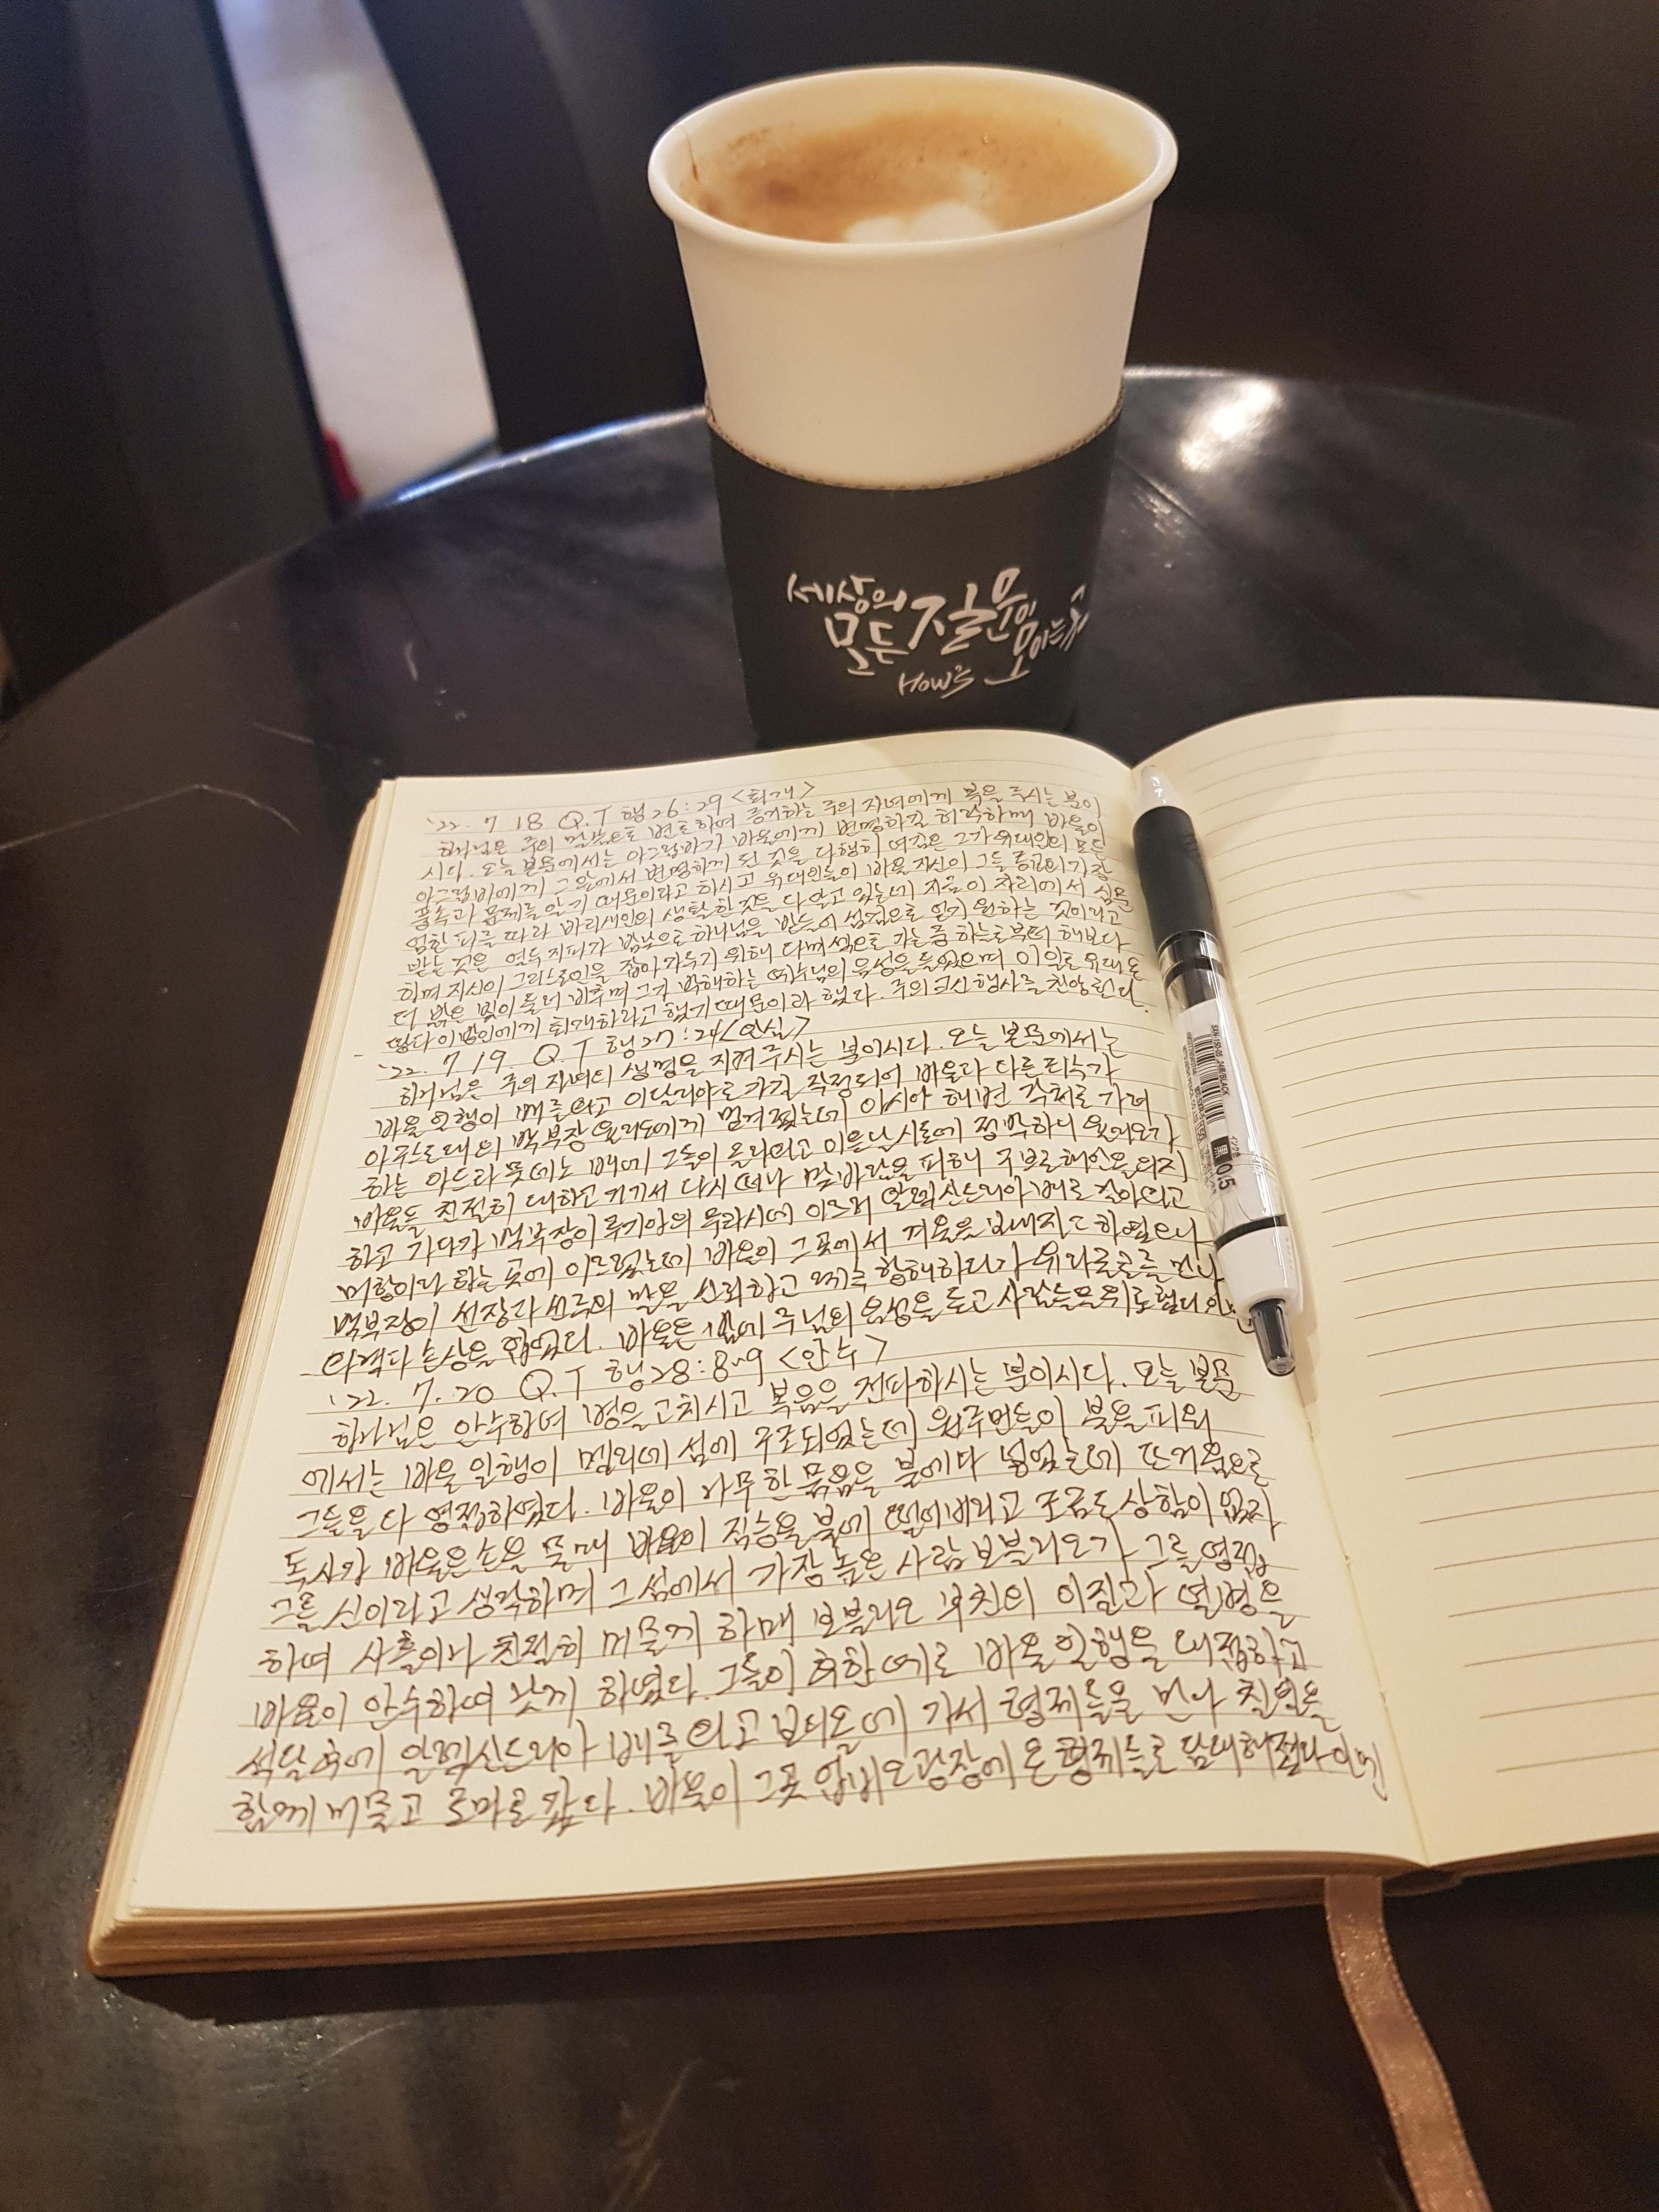 세상의
모든 질문이
모이는 곳
HOW's
'22. 7 18 Q.T 행26:29 <회개>
하나님은 주의 말씀으로 변호하며 증거하는 주의 자녀에게 복을 주시는 분이
시다. 오늘 본문에서는 아그립바가 바울에게 변명하길 허락하매 바울이
아그립바에게 그 앞에서 변명하게 된 것을 다행히 여김은 그가 유대인의 모든
풍속과 문제를 알기 때문이라고 하시고 유대인들이 바울 자신이 그들 종교의 가장
엄한 파를 따라 바리새인의 생활한 것을 다 알고 있는데 지금 이 자리에서 심문
받는 것은 열두 지파가 밤낮으로 하나님을 받들어 섬김으로 얻기 원하는 것이라고
하며 자신이 그리스도인을 잡아 가두기 위해 다메섹으로 가는 중 하늘로부터 해보다
더 밝은 빛이 둘러 비추며 그가 박해하는 예수님의 음성을 들었으며 이 일로 유대와
땅과 이방인에게 회개하라고 했기 때문이라 했다. 주의 행사를 찬양한다.
'22. 7 19 Q.T 행27:24 <안심>
하나님은 주의 자녀의 생명을 지켜 주시는 분이시다. 오늘 본문에서는
바울 일행이 배를 타고 이달리야로 가길 작정되어 바울과 다른 죄수가
아구스도대의 백부장 율리오에게 맡겨졌는데 아시아 해변 각처로 가려
하는 아드라뭇데노 배에 그들이 올라타고 이튿날 시돈에 정박하니 율리오가
바울을 친절히 대하고 거기서 다시 떠나 맞바람을 피해 구브로 해안을 의지
하고 가다가 백부장이 루기아의 무라시에 이르러 알렉산드리아 배로 갈아타고
미항이라 하는 곳에 이르렀는데 바울이 그곳에서 겨울을 보내자고 하였으나
백부장이 선장과 선주의 말을 신뢰하고 계속 항해하다가 유라굴로를 만나
타격과 손상을 입었다. 바울은 밤에 주님의 음성을 듣고 사람들을 위로했다
'22. 7. 20 Q.T 행28:8~9 <안수>
하나님은 안수하여 병을 고치시고 복음을 전파하시는 분이시다. 오늘 본문
에서는 바울 일행이 멜리데 섬에 구조되었는데 원주민들이 불을 피워
그들을 다 영접하였다. 바울이 나무 한 묶음을 불에다 넣었는데 뜨거움으로
독사가 바울은 손을 물매 바울이 짐승을 불에 떨어버리고 조금도 상함이 없자
그를 신이라고 생각하며 그 섬에서 가장 높은 사람 보블리오가 그를 영접
하여 사흘이나 친절히 머물게 하매 보블리오 부친의 이질과 열병을
바울이 안수하여 낫게 하였다. 그들이 후한 예로 바울 일행을 대접하고
석달 후에 알렉산드리아 배를 타고 보디올에 가서 형제들을 만나 칠일을
함께 머물고 로마로 갔다. 바울이 그곳 압비오 광장에 온 형제들로 담대해졌다
0.5